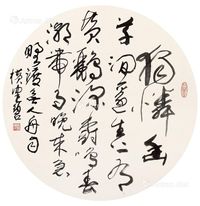 獨憐幽
草澗邊生上有
黃鸝深樹鳴春
潮帶雨晚來急
野渡無人舟自
橫